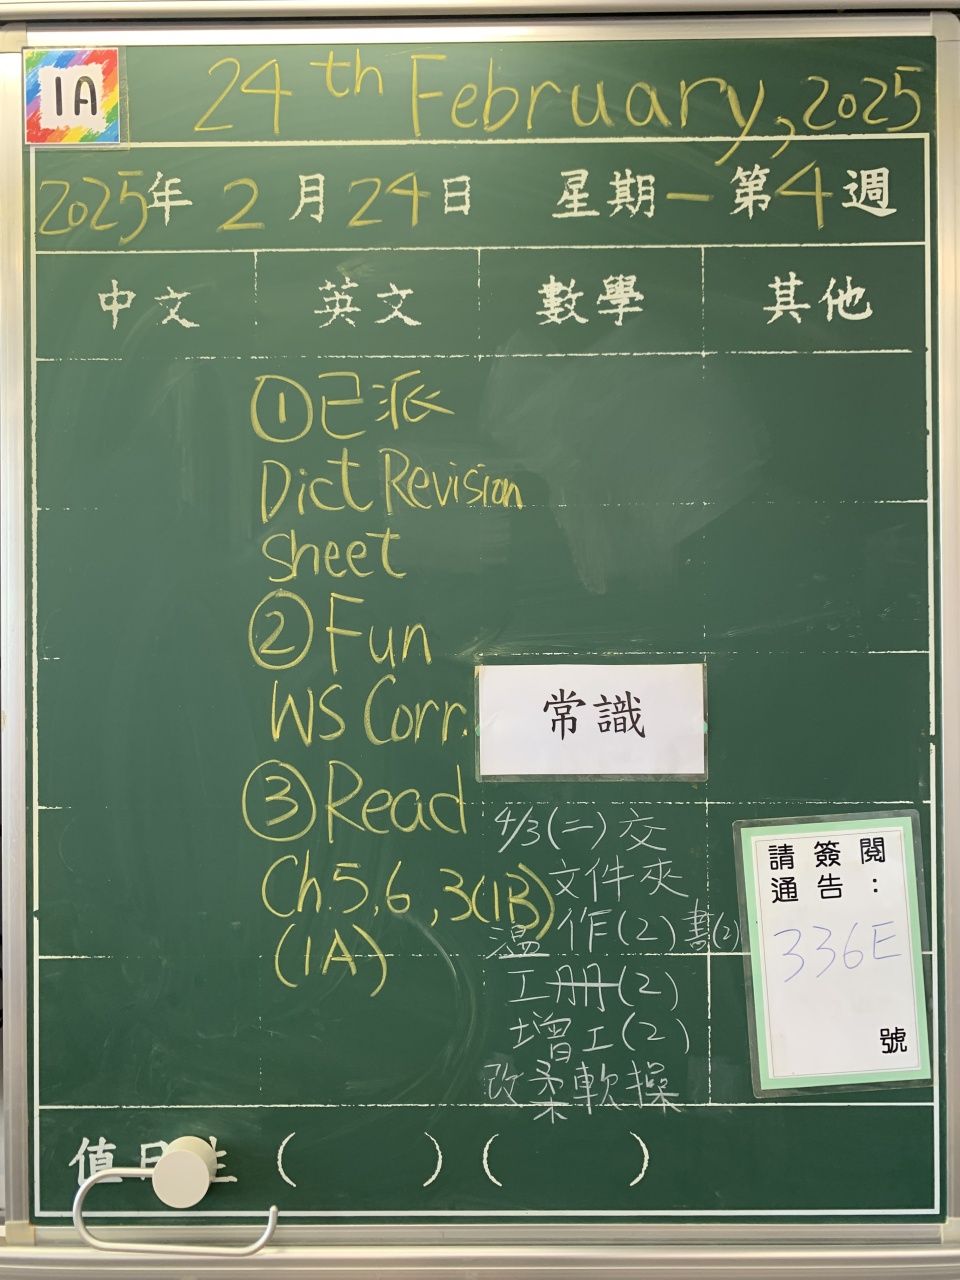 1A
24th February, 2025
2025年 2 月 24 日 星期一 第 4 週
中文 英文 數學 其他
①已派
Dict Revision
Sheet
②Fun
WS Corr.
③Read
Ch.5,6,3(1B)
(1A)
常識
4/3(二)交
文件夾
溫 作(2)書(2)
工冊(2)
增工(2)
改柔軟操
請簽閱
通告：
336E
號
值日生 ( ) ( )